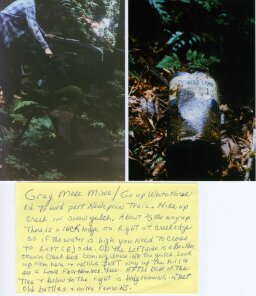 Gray Mare Mine / Go up White Horse
Rd to end past Needlepoint Trail. Hike up
Creek in snow gulch. About 2/3 the way up
There is a rock ledge on Right at Creek edge
so if the water is high you need to cross
to Left (E) side. On the Left side is a Broken
Down Creek bed coming down into the gulch. Look
up from here & notice just way up the hill
see a Lone Ponderosa Tree. At the Base of the
Tree & below to the right is body remains, (what
old bottles & mine remains.